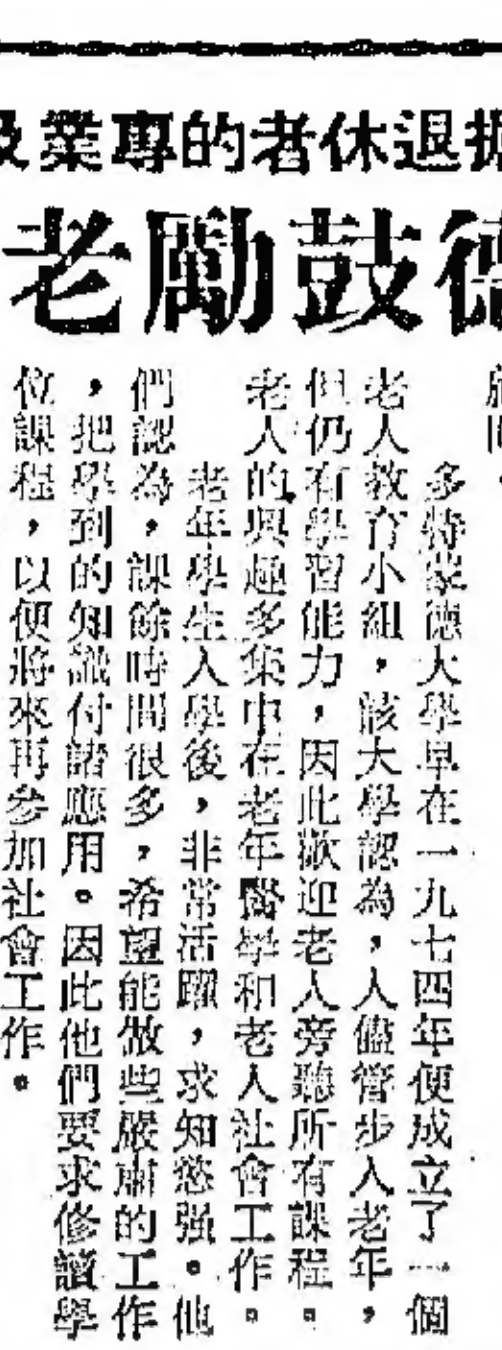 掘退休者的專業及
德鼓勵老
多特蒙德大學早在一九七四年便成立了一個
老人教育小組，該大學認為，人儘管步入老年，
但仍有學習能力，因此歡迎老人旁聽所有課程。
老人的興趣多集中在老年醫學和老人社會工作。
老年學生入學後，非常活躍，求知慾强。他
們認為，課餘時間很多，希望能做些嚴肅的工作
，把學到的知識付諸應用。因此他們要求修讀學
位課程，以便將來再參加社會工作。